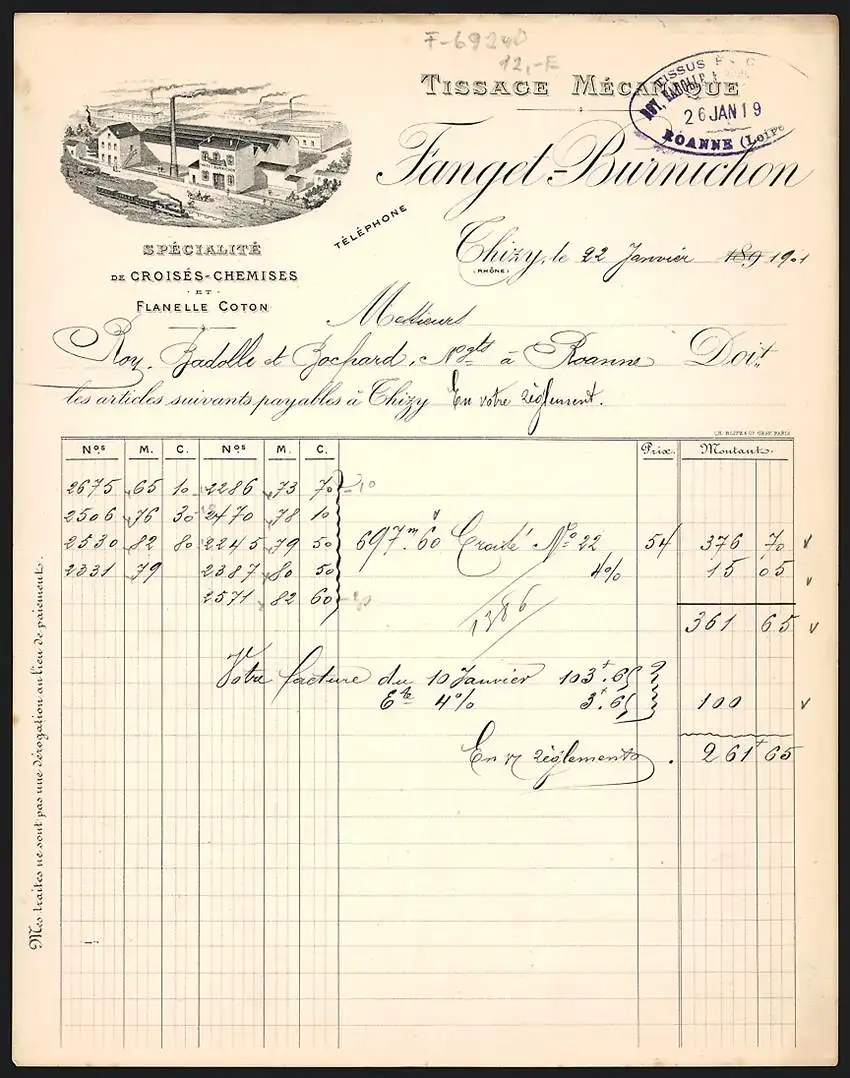 F-69240
12,-E
TISSAGE MÉCANIQUE
TISSUS
ROY, BADOLLE
26 JAN 19
ROANNE (Loire
Fanget-Burnichon
TÉLÉPHONE
SPÉCIALITÉ
DE CROISÉS-CHEMISES
ET
FLANELLE COTON
Thizy, le 22 Janvier 189 1901
(RHÔNE)
Messieurs
Roy, Badolle et Bochard, Ngts à Roanne Doit
les articles suivants payables à Thizy En votre règlement.
Nos M. C. Nos M. C. Prix. Montants.
2675 65 10 2286 73 70
2506 76 30 2470 78 10
2530 82 80 2245 79 50 697m 60 Croisé No 22 54 376 70
2331 79 2387 80 50 4% 15 05
2571 82 60
1386
361 65
Votre facture du 10 Janvier 103f.65
Ete 4% 3f.65 100
En v/ règlements. 261f 65
Mes traites ne sont pas une dérogation au lieu de paiement.